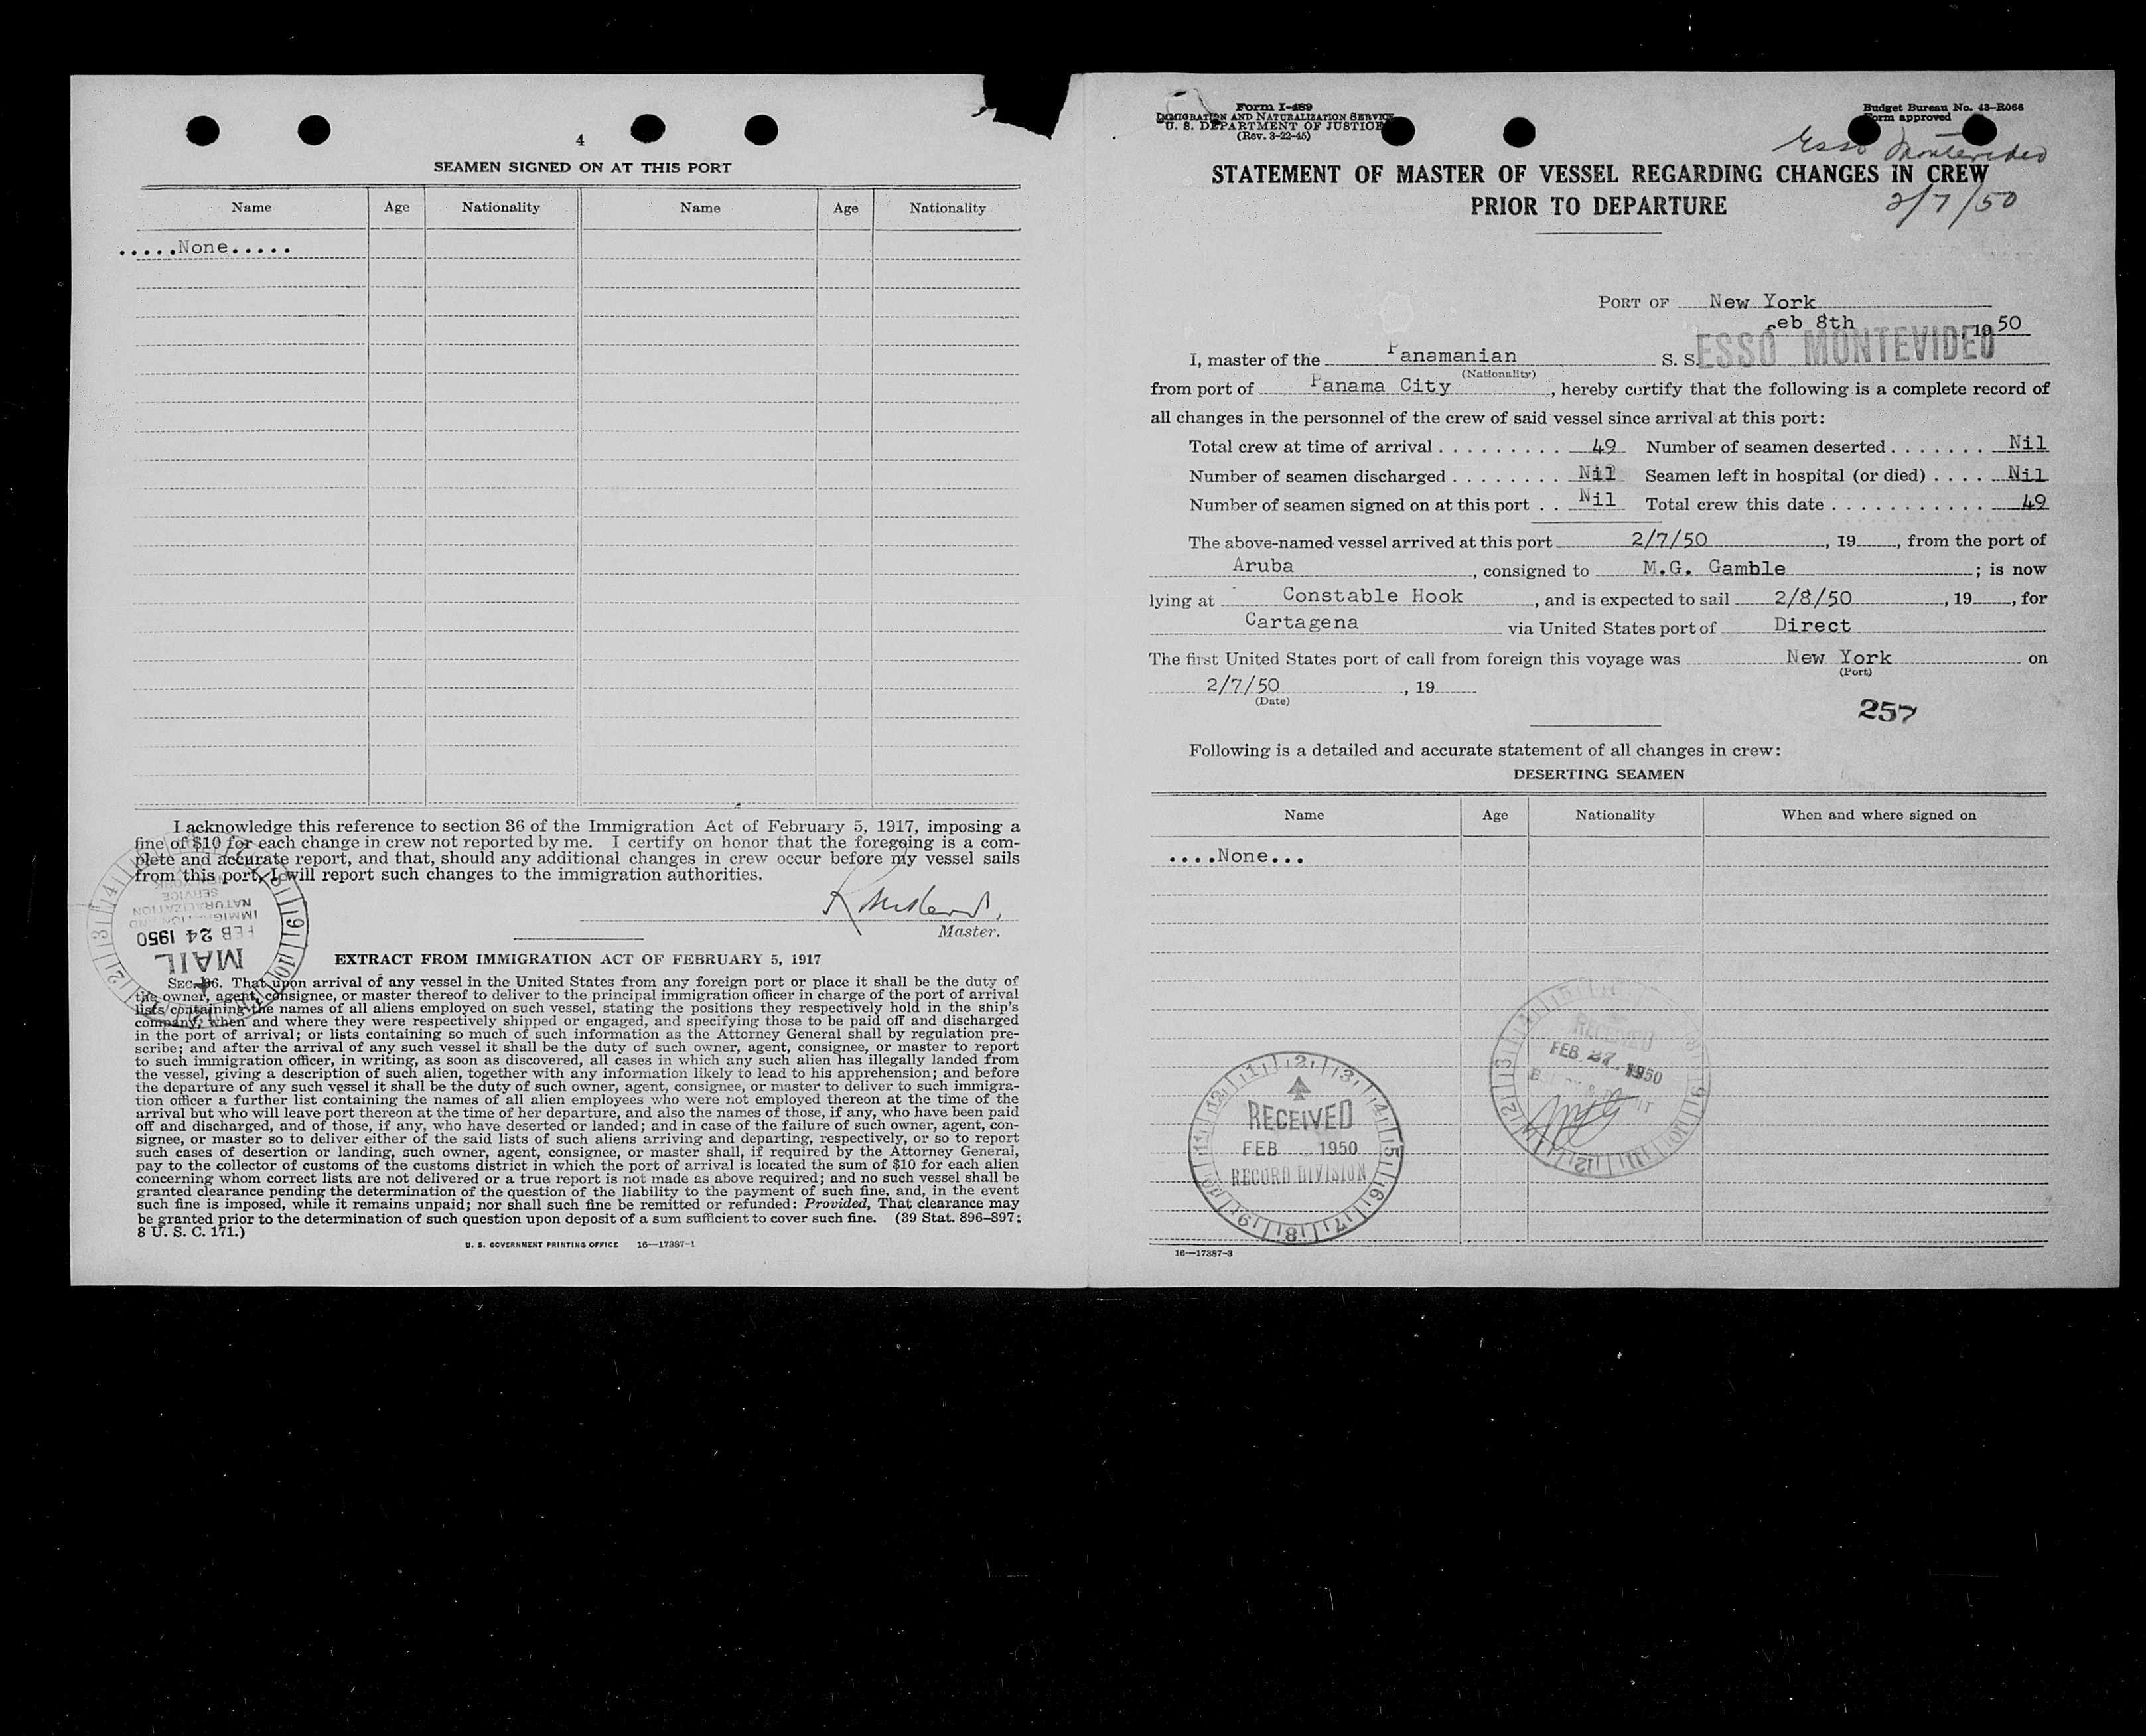 4
SEAMEN SIGNED ON AT THIS PORT
Name Age Nationality Name Age Nationality
.....None.....
I acknowledge this reference to section 36 of the Immigration Act of February 5, 1917, imposing a
fine of $10 for each change in crew not reported by me. I certify on honor that the foregoing is a com-
plete and accurate report, and that, should any additional changes in crew occur before my vessel sails
from this port, I will report such changes to the immigration authorities.
Master.
FEB 24 1950
MAIL
EXTRACT FROM IMMIGRATION ACT OF FEBRUARY 5, 1917
SEC. 36. That upon arrival of any vessel in the United States from any foreign port or place it shall be the duty of
the owner, agent, consignee, or master thereof to deliver to the principal immigration officer in charge of the port of arrival
lists containing the names of all aliens employed on such vessel, stating the positions they respectively hold in the ship's
company, when and where they were respectively shipped or engaged, and specifying those to be paid off and discharged
in the port of arrival; or lists containing so much of such information as the Attorney General shall by regulation pre-
scribe; and after the arrival of any such vessel it shall be the duty of such owner, agent, consignee, or master to report
to such immigration officer, in writing, as soon as discovered, all cases in which any such alien has illegally landed from
the vessel, giving a description of such alien, together with any information likely to lead to his apprehension; and before
the departure of any such vessel it shall be the duty of such owner, agent, consignee, or master to deliver to such immigra-
tion officer a further list containing the names of all alien employees who were not employed thereon at the time of the
arrival but who will leave port thereon at the time of her departure, and also the names of those, if any, who have been paid
off and discharged, and of those, if any, who have deserted or landed; and in case of the failure of such owner, agent, con-
signee, or master so to deliver either of the said lists of such aliens arriving and departing, respectively, or so to report
such cases of desertion or landing, such owner, agent, consignee, or master shall, if required by the Attorney General,
pay to the collector of customs of the customs district in which the port of arrival is located the sum of $10 for each alien
concerning whom correct lists are not delivered or a true report is not made as above required; and no such vessel shall be
granted clearance pending the determination of the question of the liability to the payment of such fine, and, in the event
such fine is imposed, while it remains unpaid; nor shall such fine be remitted or refunded: Provided, That clearance may
be granted prior to the determination of such question upon deposit of a sum sufficient to cover such fine. (39 Stat. 896-897;
8 U. S. C. 171.)
U. S. GOVERNMENT PRINTING OFFICE 16—17387-1
Form I-489
IMMIGRATION AND NATURALIZATION SERVICE
U. S. DEPARTMENT OF JUSTICE
(Rev. 3-22-45)
Budget Bureau No. 43-R066
Form approved
Esso Montevideo
STATEMENT OF MASTER OF VESSEL REGARDING CHANGES IN CREW
PRIOR TO DEPARTURE
2/7/50
PORT OF New York
eb 8th, 1950
I, master of the Panamanian S. S. ESSO MONTEVIDEO
(Nationality)
from port of Panama City, hereby certify that the following is a complete record of
all changes in the personnel of the crew of said vessel since arrival at this port:
Total crew at time of arrival . . . . . . . . . 49 Number of seamen deserted . . . . . . . Nil
Number of seamen discharged . . . . . . . . Nil Seamen left in hospital (or died) . . . . Nil
Number of seamen signed on at this port . . Nil Total crew this date . . . . . . . . . . . 49
The above-named vessel arrived at this port 2/7/50, 19, from the port of
Aruba, consigned to M.G. Gamble; is now
lying at Constable Hook, and is expected to sail 2/8/50, 19, for
Cartagena via United States port of Direct
The first United States port of call from foreign this voyage was New York on
(Port)
2/7/50, 19
(Date)
257
Following is a detailed and accurate statement of all changes in crew:
DESERTING SEAMEN
Name Age Nationality When and where signed on
....None...
RECEIVED
FEB 27 1950
RECEIVED
FEB 1950
RECORD DIVISION
16—17387-3